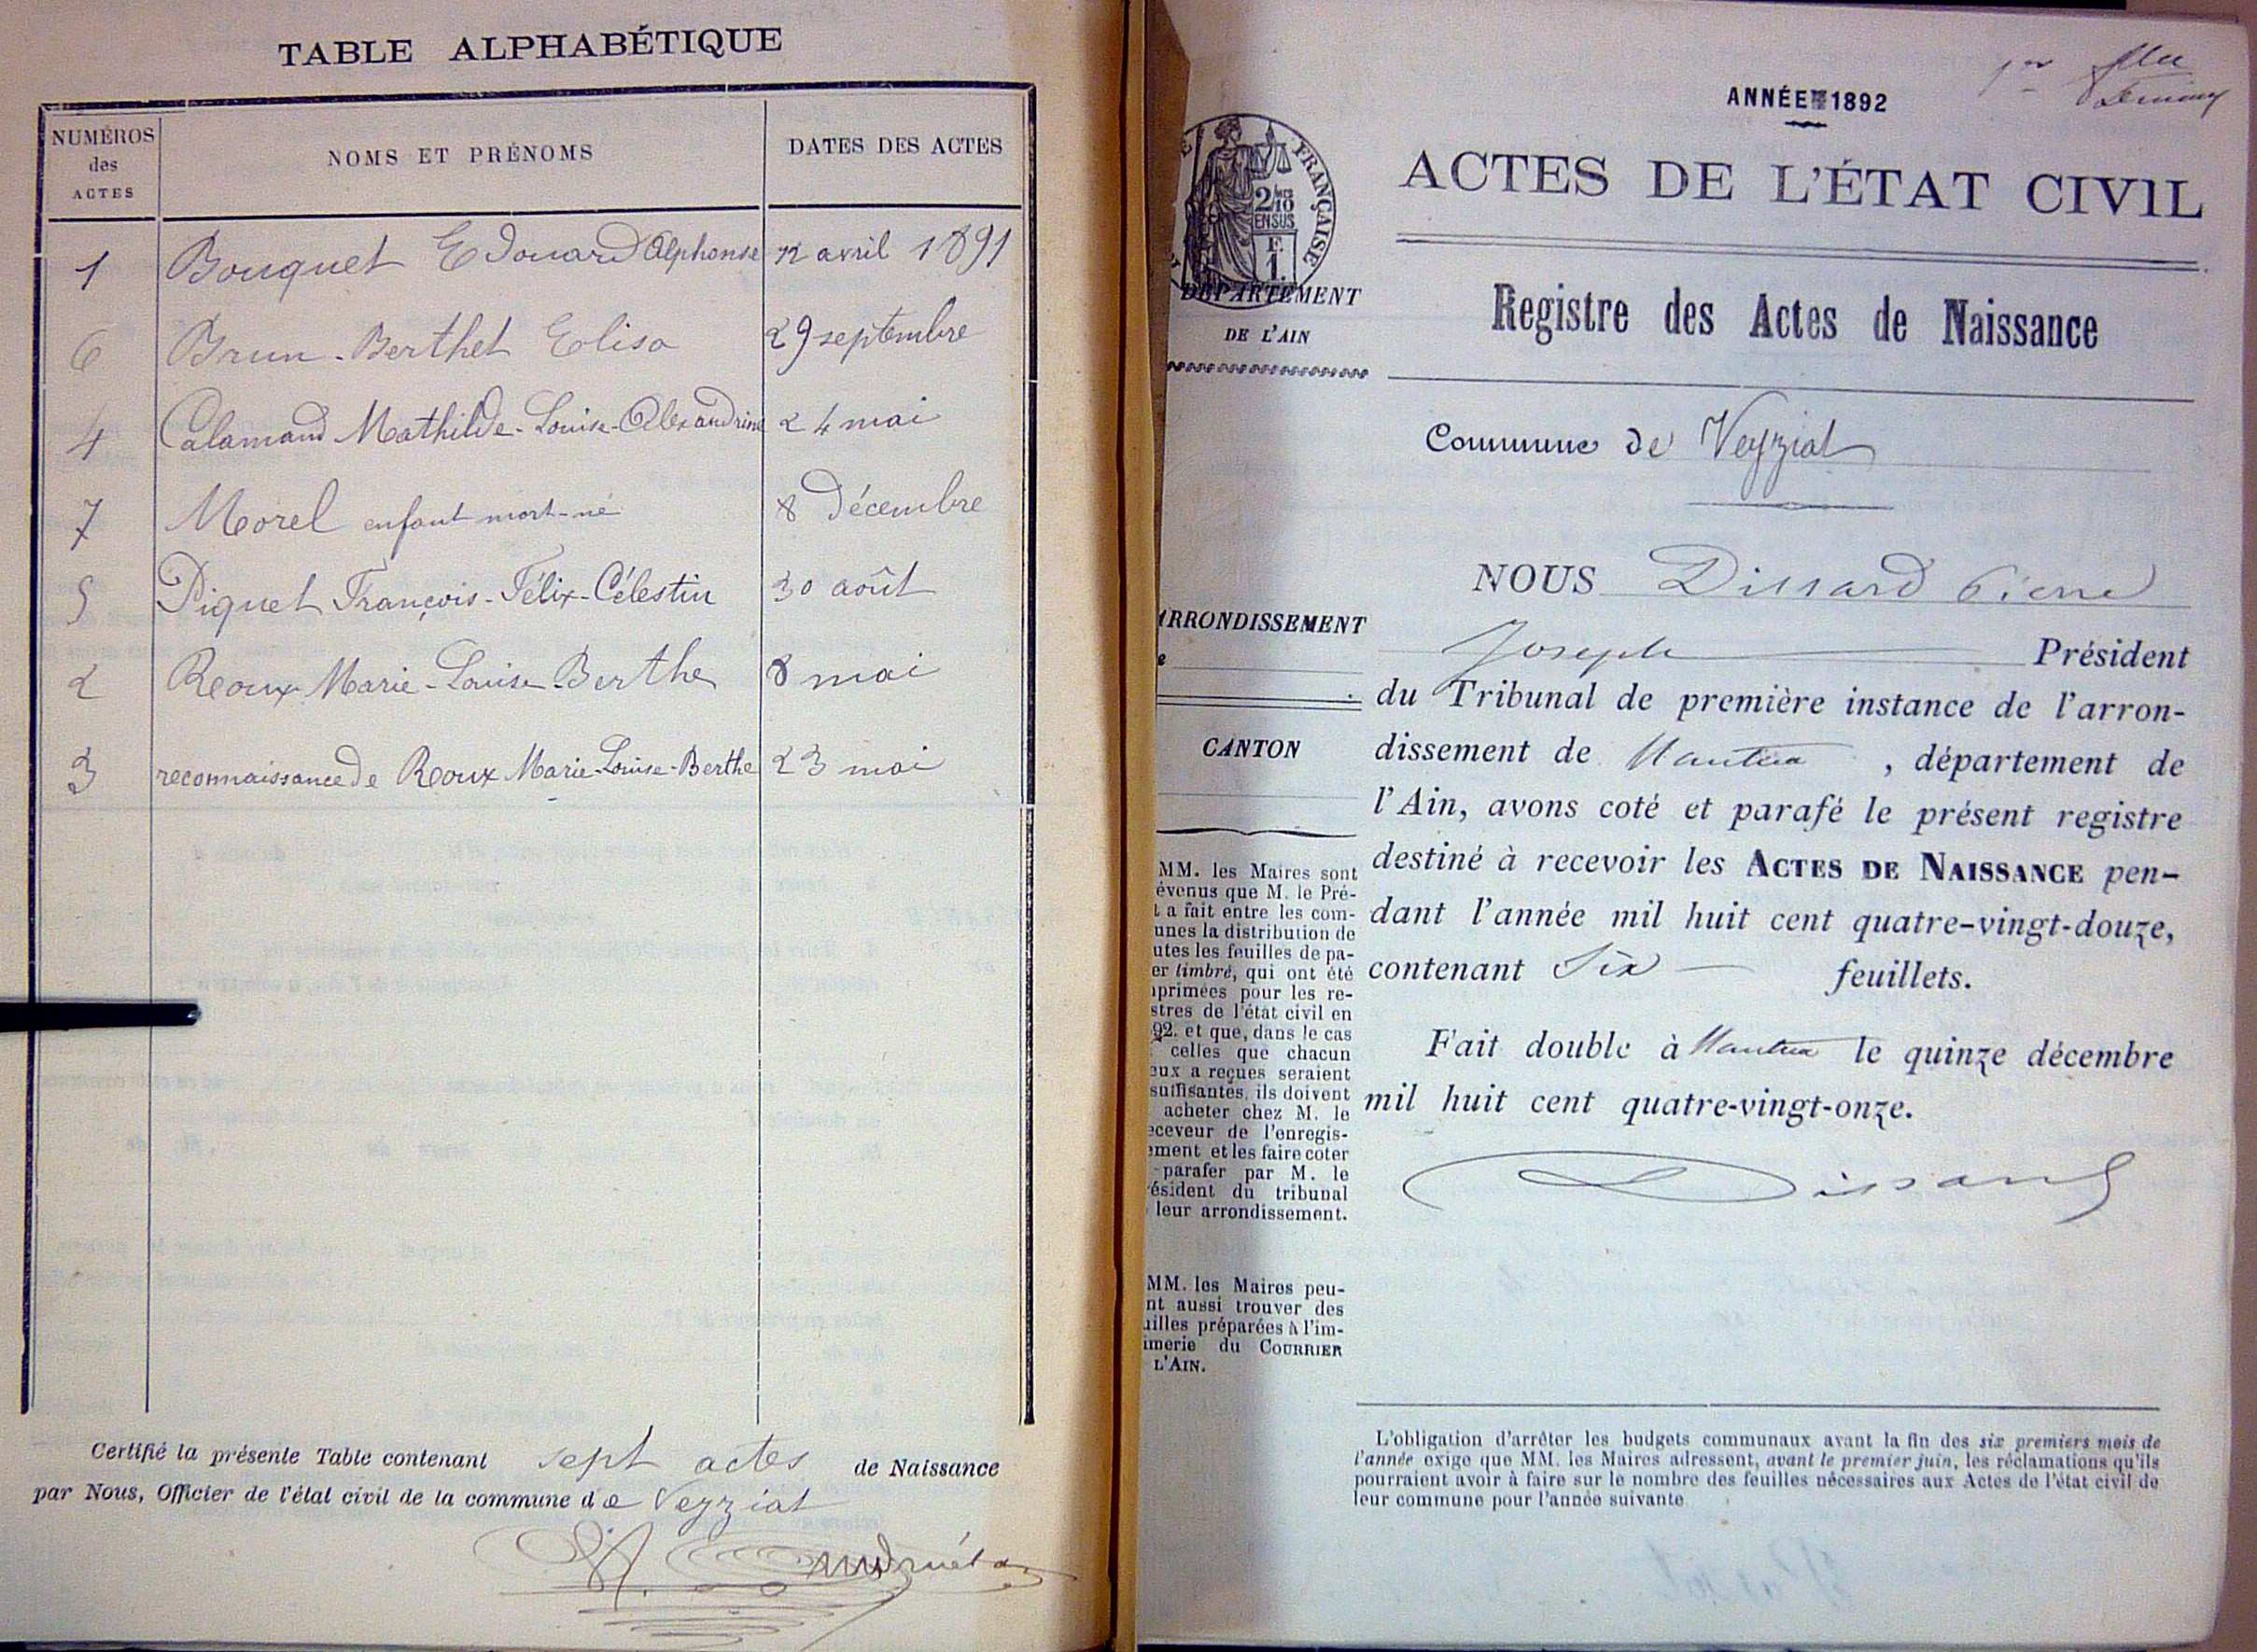 TABLE ALPHABÉTIQUE
NUMÉROS des ACTES
NOMS ET PRÉNOMS
DATES DES ACTES
1 Bouquet Edouard Alphonse 12 avril 1891
6 Brun-Berthet Elisa 29 septembre
4 Calamand Mathilde-Louise-Alexandrine 24 mai
7 Morel enfant mort-né 8 décembre
5 Piquet François-Félix-Célestin 30 août
2 Roux Marie-Louise-Berthe 8 mai
3 reconnaissance de Roux Marie-Louise-Berthe 23 mai
Certifié la présente Table contenant sept actes de Naissance
par Nous, Officier de l'état civil de la commune de Veyziat
ANNÉE 1892
1er
FRANÇAISE
2/10
EN SUS
F.
1.
ACTES DE L'ÉTAT CIVIL
DÉPARTEMENT
DE L'AIN
Registre des Actes de Naissance
Commune de Veyziat
ARRONDISSEMENT
CANTON
MM. les Maires sont
évenus que M. le Pré-
t a fait entre les com-
unes la distribution de
utes les feuilles de pa-
er timbré, qui ont été
primées pour les re-
stres de l'état civil en
92. et que, dans le cas
celles que chacun
eux a reçues seraient
suffisantes, ils doivent
acheter chez M. le
eceveur de l'enregis-
ement et les faire coter
parafer par M. le
ésident du tribunal
leur arrondissement.
MM. les Maires peu-
nt aussi trouver des
uilles préparées à l'im-
imerie du COURRIER
L'AIN.
NOUS Dissard Pierre
Joseph Président
du Tribunal de première instance de l'arron-
dissement de Nantua, département de
l'Ain, avons coté et parafé le présent registre
destiné à recevoir les ACTES DE NAISSANCE pen-
dant l'année mil huit cent quatre-vingt-douze,
contenant Six feuillets.
Fait double à Nantua le quinze décembre
mil huit cent quatre-vingt-onze.
Dissard
L'obligation d'arrêter les budgets communaux avant la fin des six premiers mois de
l'année exige que MM. les Maires adressent, avant le premier juin, les réclamations qu'ils
pourraient avoir à faire sur le nombre des feuilles nécessaires aux Actes de l'état civil de
leur commune pour l'année suivante